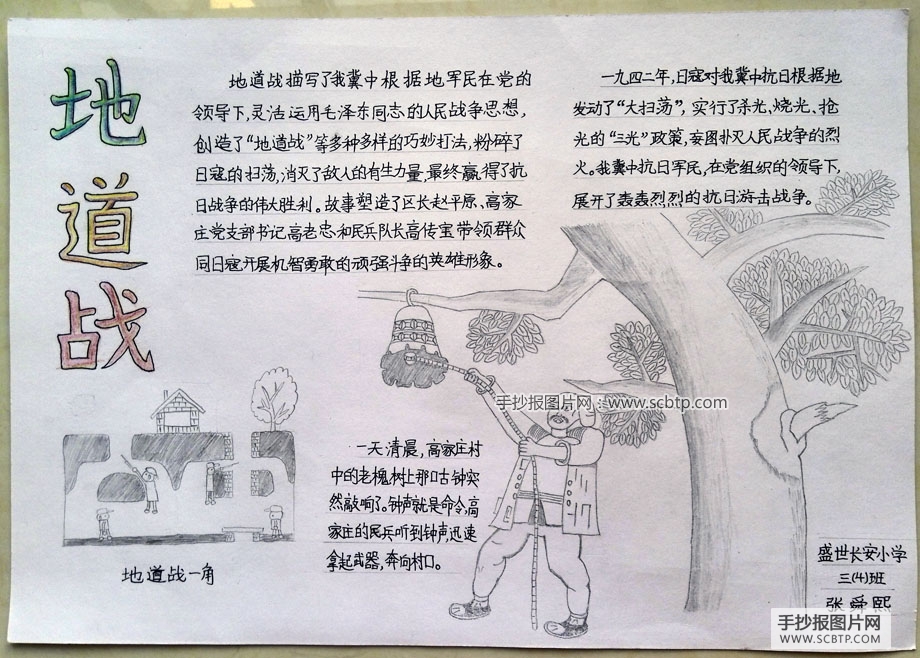 地道战
地道战描写了我冀中根据地军民在党的
领导下,灵活运用毛泽东同志的人民战争思想,
创造了“地道战”等多种多样的巧妙打法,粉碎了
日寇的扫荡,消灭了敌人的有生力量,最终赢得了抗
日战争的伟大胜利。故事塑造了区长赵平原、高家
庄党支部书记高老忠和民兵队长高传宝带领群众
同日寇开展机智勇敢的顽强斗争的英雄形象。
一九四二年,日寇对我冀中抗日根据地
发动了“大扫荡”,实行了杀光、烧光、抢
光的“三光”政策,妄图扑灭人民战争的烈
火。我冀中抗日军民,在党组织的领导下,
展开了轰轰烈烈的抗日游击战争。
手抄报图片网:www.scbtp.com
一天清晨,高家庄村
中的老槐树上那口古钟突
然敲响了。钟声就是命令,高
家庄的民兵听到钟声迅速
拿起武器,奔向村口。
地道战一角
盛世长安小学
三(4)班
张舜熙
手抄报图片网
WWW.SCBTP.COM